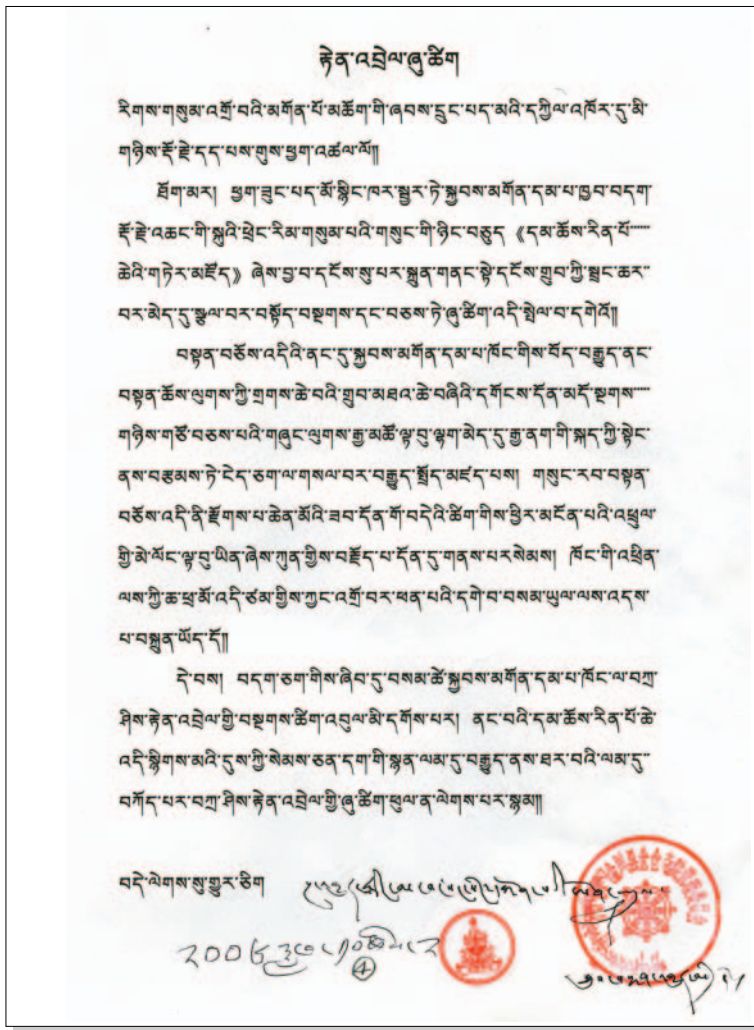 རྟེན་འབྲེལ་ཞུ་ཚིག
རིགས་གསུམ་འགྲོ་བའི་མགོན་པོ་མཆོག་གི་ཞབས་དྲུང་པད་མའི་དཀྱིལ་འཁོར་དུ་མི་
གཉིས་རྡོ་རྗེ་དད་པས་གུས་ཕྱག་འཚལ་ལོ༎
ཐོག་མར། ཕྱག་ཟུང་པད་མོ་སྙིང་ཁར་སྦྱར་ཏེ་སྐྱབས་མགོན་དམ་པ་ཁྱབ་བདག་
རྡོ་རྗེ་འཆང་གི་སྐུའི་ཕྲེང་རིམ་གསུམ་པའི་གསུང་གི་ཉིང་བཅུད 《དམ་ཆོས་རིན་པོ་
ཆེའི་གཏེར་མཛོད》 ཞེས་བྱ་བ་དངོས་སུ་པར་སྐྲུན་གནང་སྟེ་དངོས་གྲུབ་ཀྱི་སྦྲང་ཆར་
བར་མེད་དུ་སྩལ་བར་བསྟོད་བསྔགས་དང་བཅས་ཏེ་ཞུ་ཚིག་འདི་སྤེལ་བ་དགེའོ༎
བསྟན་བཅོས་འདིའི་ནང་དུ་སྐྱབས་མགོན་དམ་པ་ཁོང་གིས་བོད་བརྒྱུད་ནང་
བསྟན་ཆོས་ལུགས་ཀྱི་གྲགས་ཆེ་བའི་གྲུབ་མཐའ་ཆེ་བཞིའི་དགོངས་དོན་མདོ་སྔགས་
གཉིས་གཙོ་བཅས་པའི་གཞུང་ལུགས་རྒྱ་མཚོ་ལྟ་བུ་ལྷག་མེད་དུ་རྒྱ་ནག་གི་སྐད་ཀྱི་སྟེང་
ནས་བརྩམས་ཏེ་ངེད་ཅག་ལ་གསལ་བར་བརྒྱུད་སྤྲོད་མཛད་པས། གསུང་རབ་བསྟན་
བཅོས་འདི་ནི་རྫོགས་པ་ཆེན་མོའི་ཟབ་དོན་གོ་བདེའི་ཚིག་གིས་ཕྱིར་མངོན་པའི་འཕྲུལ་
གྱི་མེ་ལོང་ལྟ་བུ་ཡིན་ཞེས་ཀུན་གྱིས་བརྗོད་པ་དོན་དུ་གནས་པར་སེམས། ཁོང་གི་འཕྲིན་
ལས་ཀྱི་ཆ་ཕྲ་མོ་འདི་ཙམ་གྱིས་ཀྱང་འགྲོ་བར་ཕན་པའི་དགེ་བ་བསམ་ཡུལ་ལས་འདས་
པ་བསྐྲུན་ཡོད་དོ༎
དེ་བས། བདག་ཅག་གིས་ཞིབ་དུ་བསམ་ཚེ་སྐྱབས་མགོན་དམ་པ་ཁོང་ལ་བཀྲ་
ཤིས་རྟེན་འབྲེལ་གྱི་བསྔགས་ཚིག་འབུལ་མི་དགོས་པར། ནང་བའི་དམ་ཆོས་རིན་པོ་ཆེ་
འདི་སྙིགས་མའི་དུས་ཀྱི་སེམས་ཅན་དག་གི་སྙན་ལམ་དུ་བརྒྱུད་ནས་ཐར་བའི་ལམ་དུ་
བཀོད་པར་བཀྲ་ཤིས་རྟེན་འབྲེལ་གྱི་ཞུ་ཚིག་ཕུལ་ན་ལེགས་པར་སྙམ༎
བདེ་ལེགས་སུ་གྱུར་ཅིག